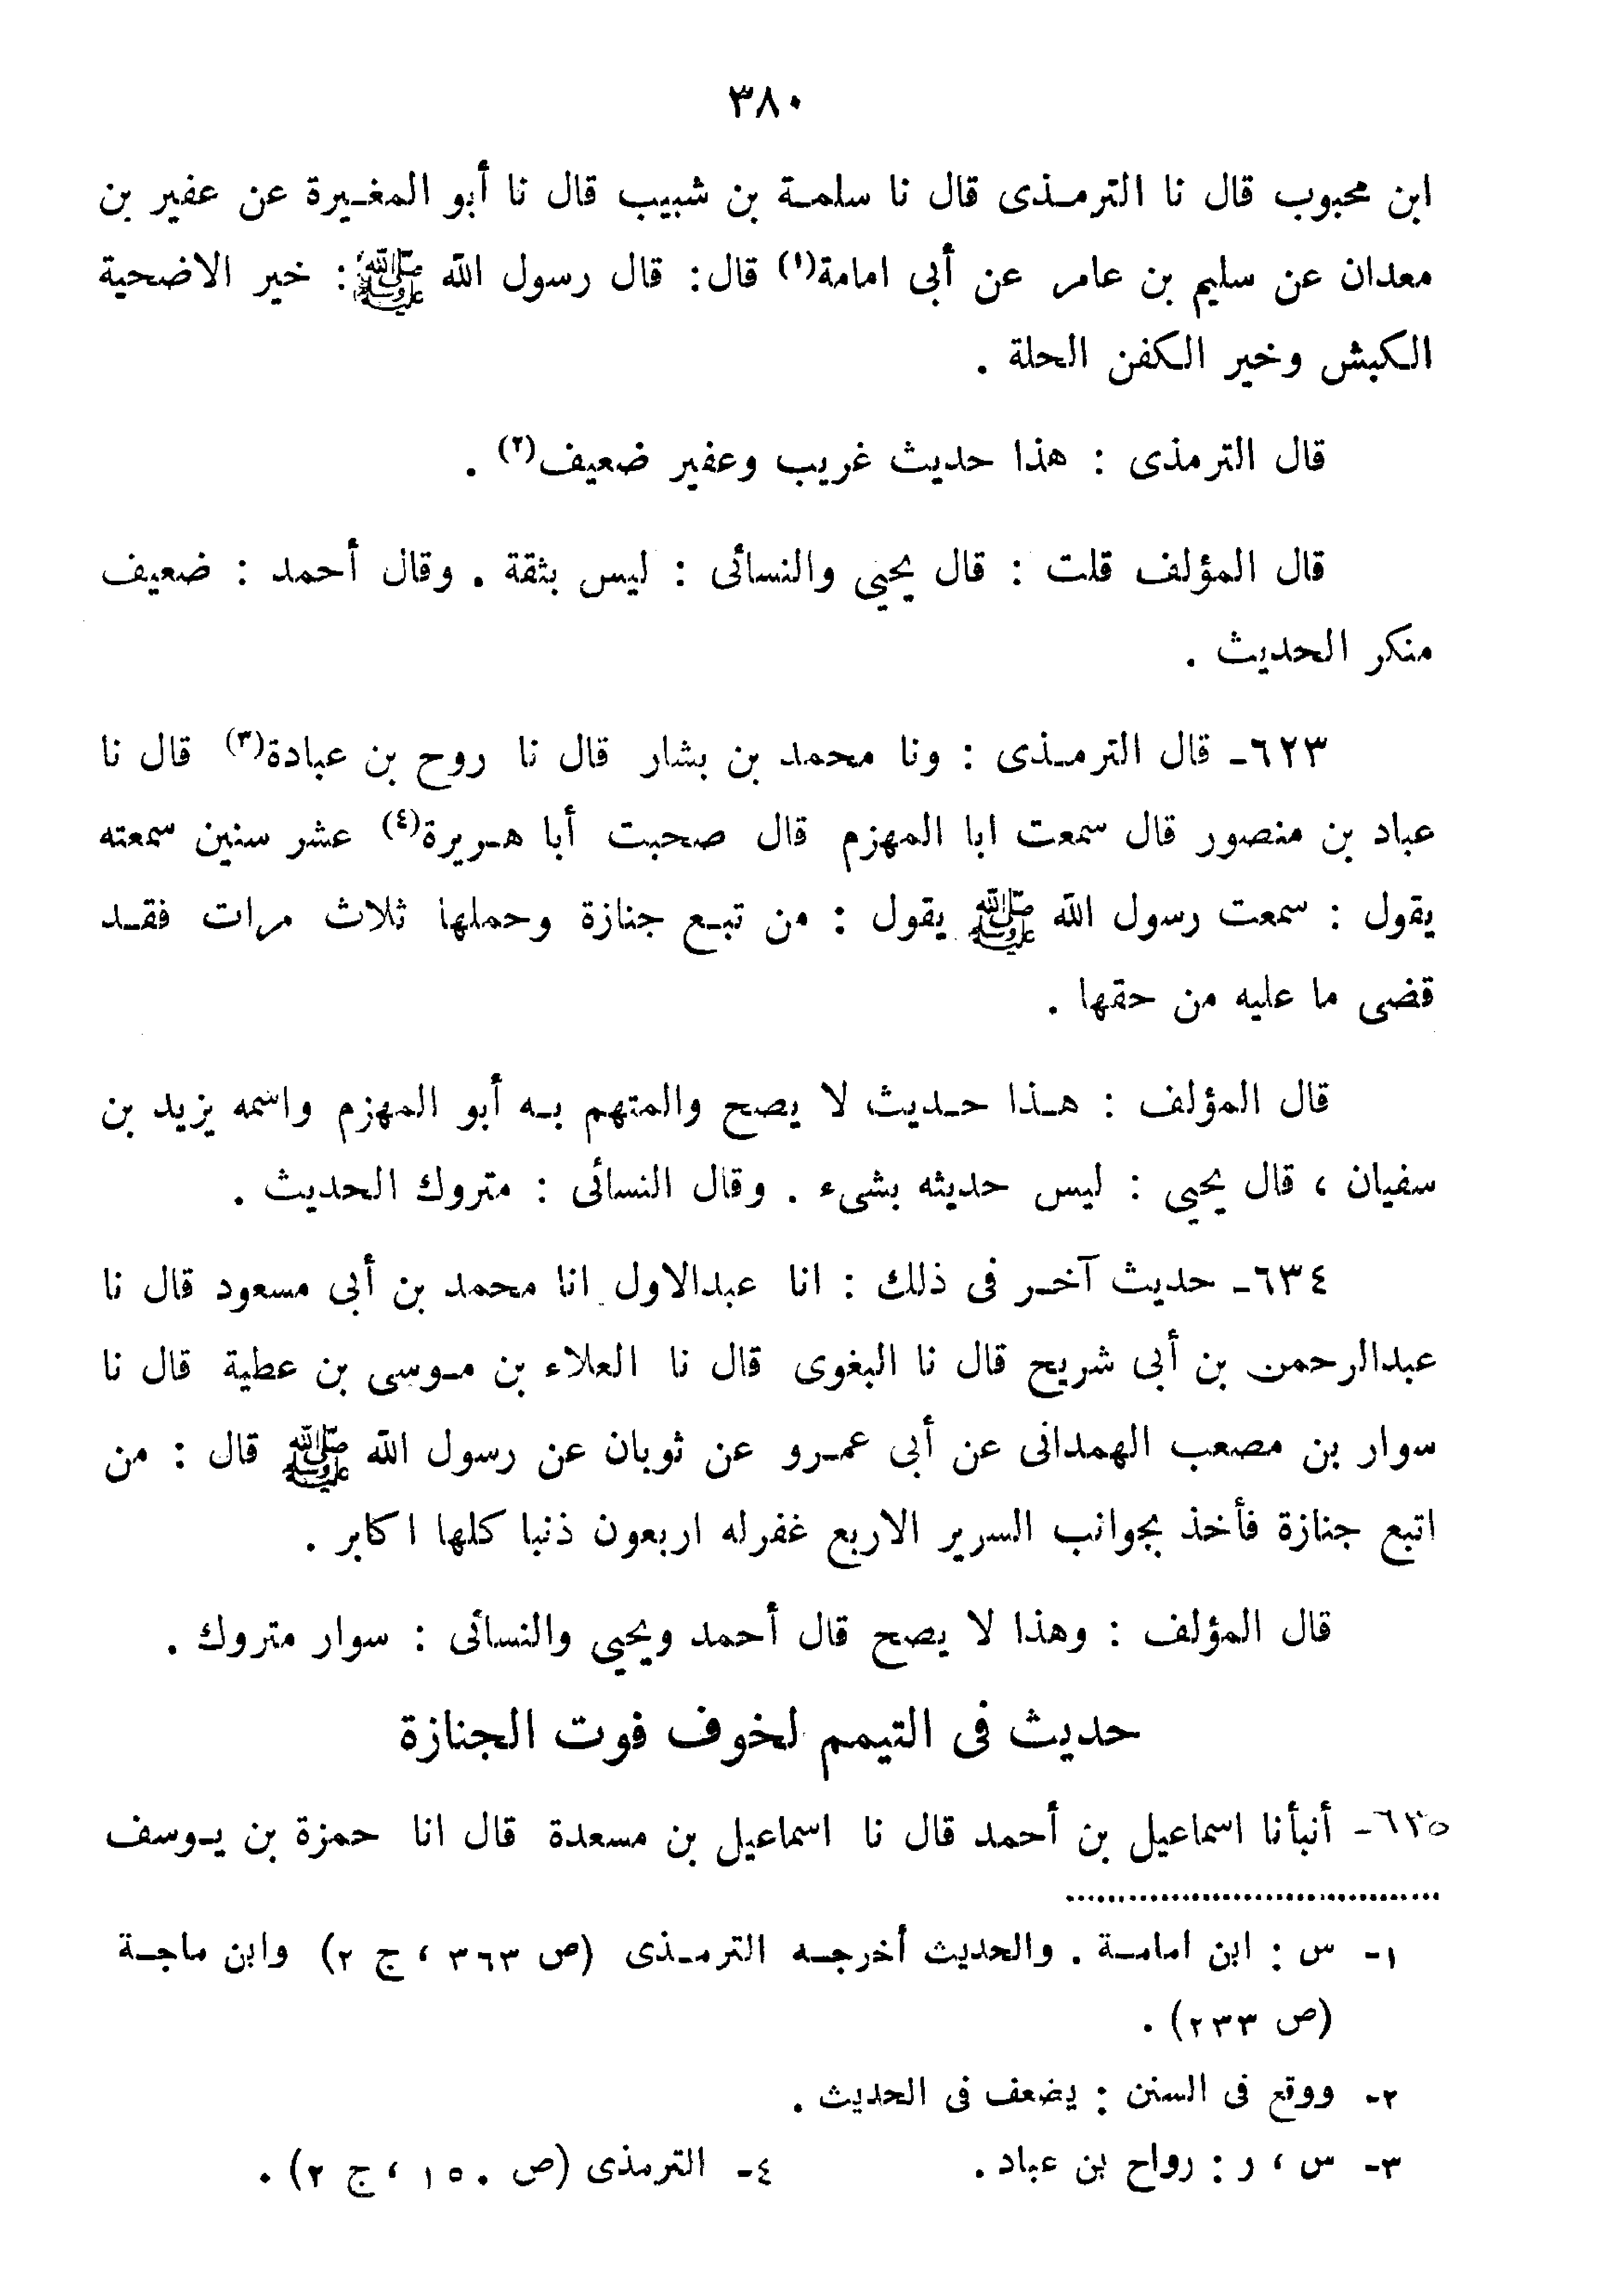 ٣٨٠
ابن محبوب قال نا الترمـذى قال نا سلمـة بن شبيب قال نا أبو المغـيرة عن عفير بن
معدان عن سليم بن عامر عن أبى امامة(١) قال: قال رسول الله ﷺ: خير الاضحية
الكبش وخير الكفن الحلة .
قال الترمذى : هذا حديث غريب وعفير ضعيف(٢) .
قال المؤلف قلت : قال يحيى والنسائى : ليس بثقة . وقال أحمد : ضعيف
منكر الحديث .
٦٢٣ـ قال الترمـذى : ونا محمد بن بشار قال نا روح بن عبادة(٣) قال نا
عباد بن منصور قال سمعت ابا المهزم قال صحبت أبا هـريرة(٤) عشر سنين سمعته
يقول : سمعت رسول الله ﷺ يقول : من تبـع جنازة وحملها ثلاث مرات فقـد
قضى ما عليه من حقها .
قال المؤلف : هـذا حـديث لا يصح والمتهم بـه أبو المهزم واسمه يزيد بن
سفيان ، قال يحيى : ليس حديثه بشىء . وقال النسائى : متروك الحديث .
٦٣٤ـ حديث آخـر فى ذلك : انا عبدالاول انا محمد بن أبى مسعود قال نا
عبدالرحمن بن أبى شريح قال نا البغوى قال نا العلاء بن مـوسى بن عطية قال نا
سوار بن مصعب الهمدانى عن أبى عمـرو عن ثوبان عن رسول الله ﷺ قال : من
اتبع جنازة فأخذ بجوانب السرير الاربع غفرله اربعون ذنبا كلها اكابر .
قال المؤلف : وهذا لا يصح قال أحمد ويحيى والنسائى : سوار متروك .
حديث فى التيمم لخوف فوت الجنازة
٦٣٥ـ أنبأنا اسماعيل بن أحمد قال نا اسماعيل بن مسعدة قال انا حمزة بن يـوسف
١ـ س : ابن امامـة . والحديث أخرجـه الترمـذى (ص ٣٦٣ ، ج ٢) وابن ماجـة
(ص ٢٣٣) .
٢ـ ووقع فى السنن : يضعف فى الحديث .
٣ـ س ، ر : رواح بن عباد . ٤ـ الترمذى (ص ١٥٠ ، ج ٢) .